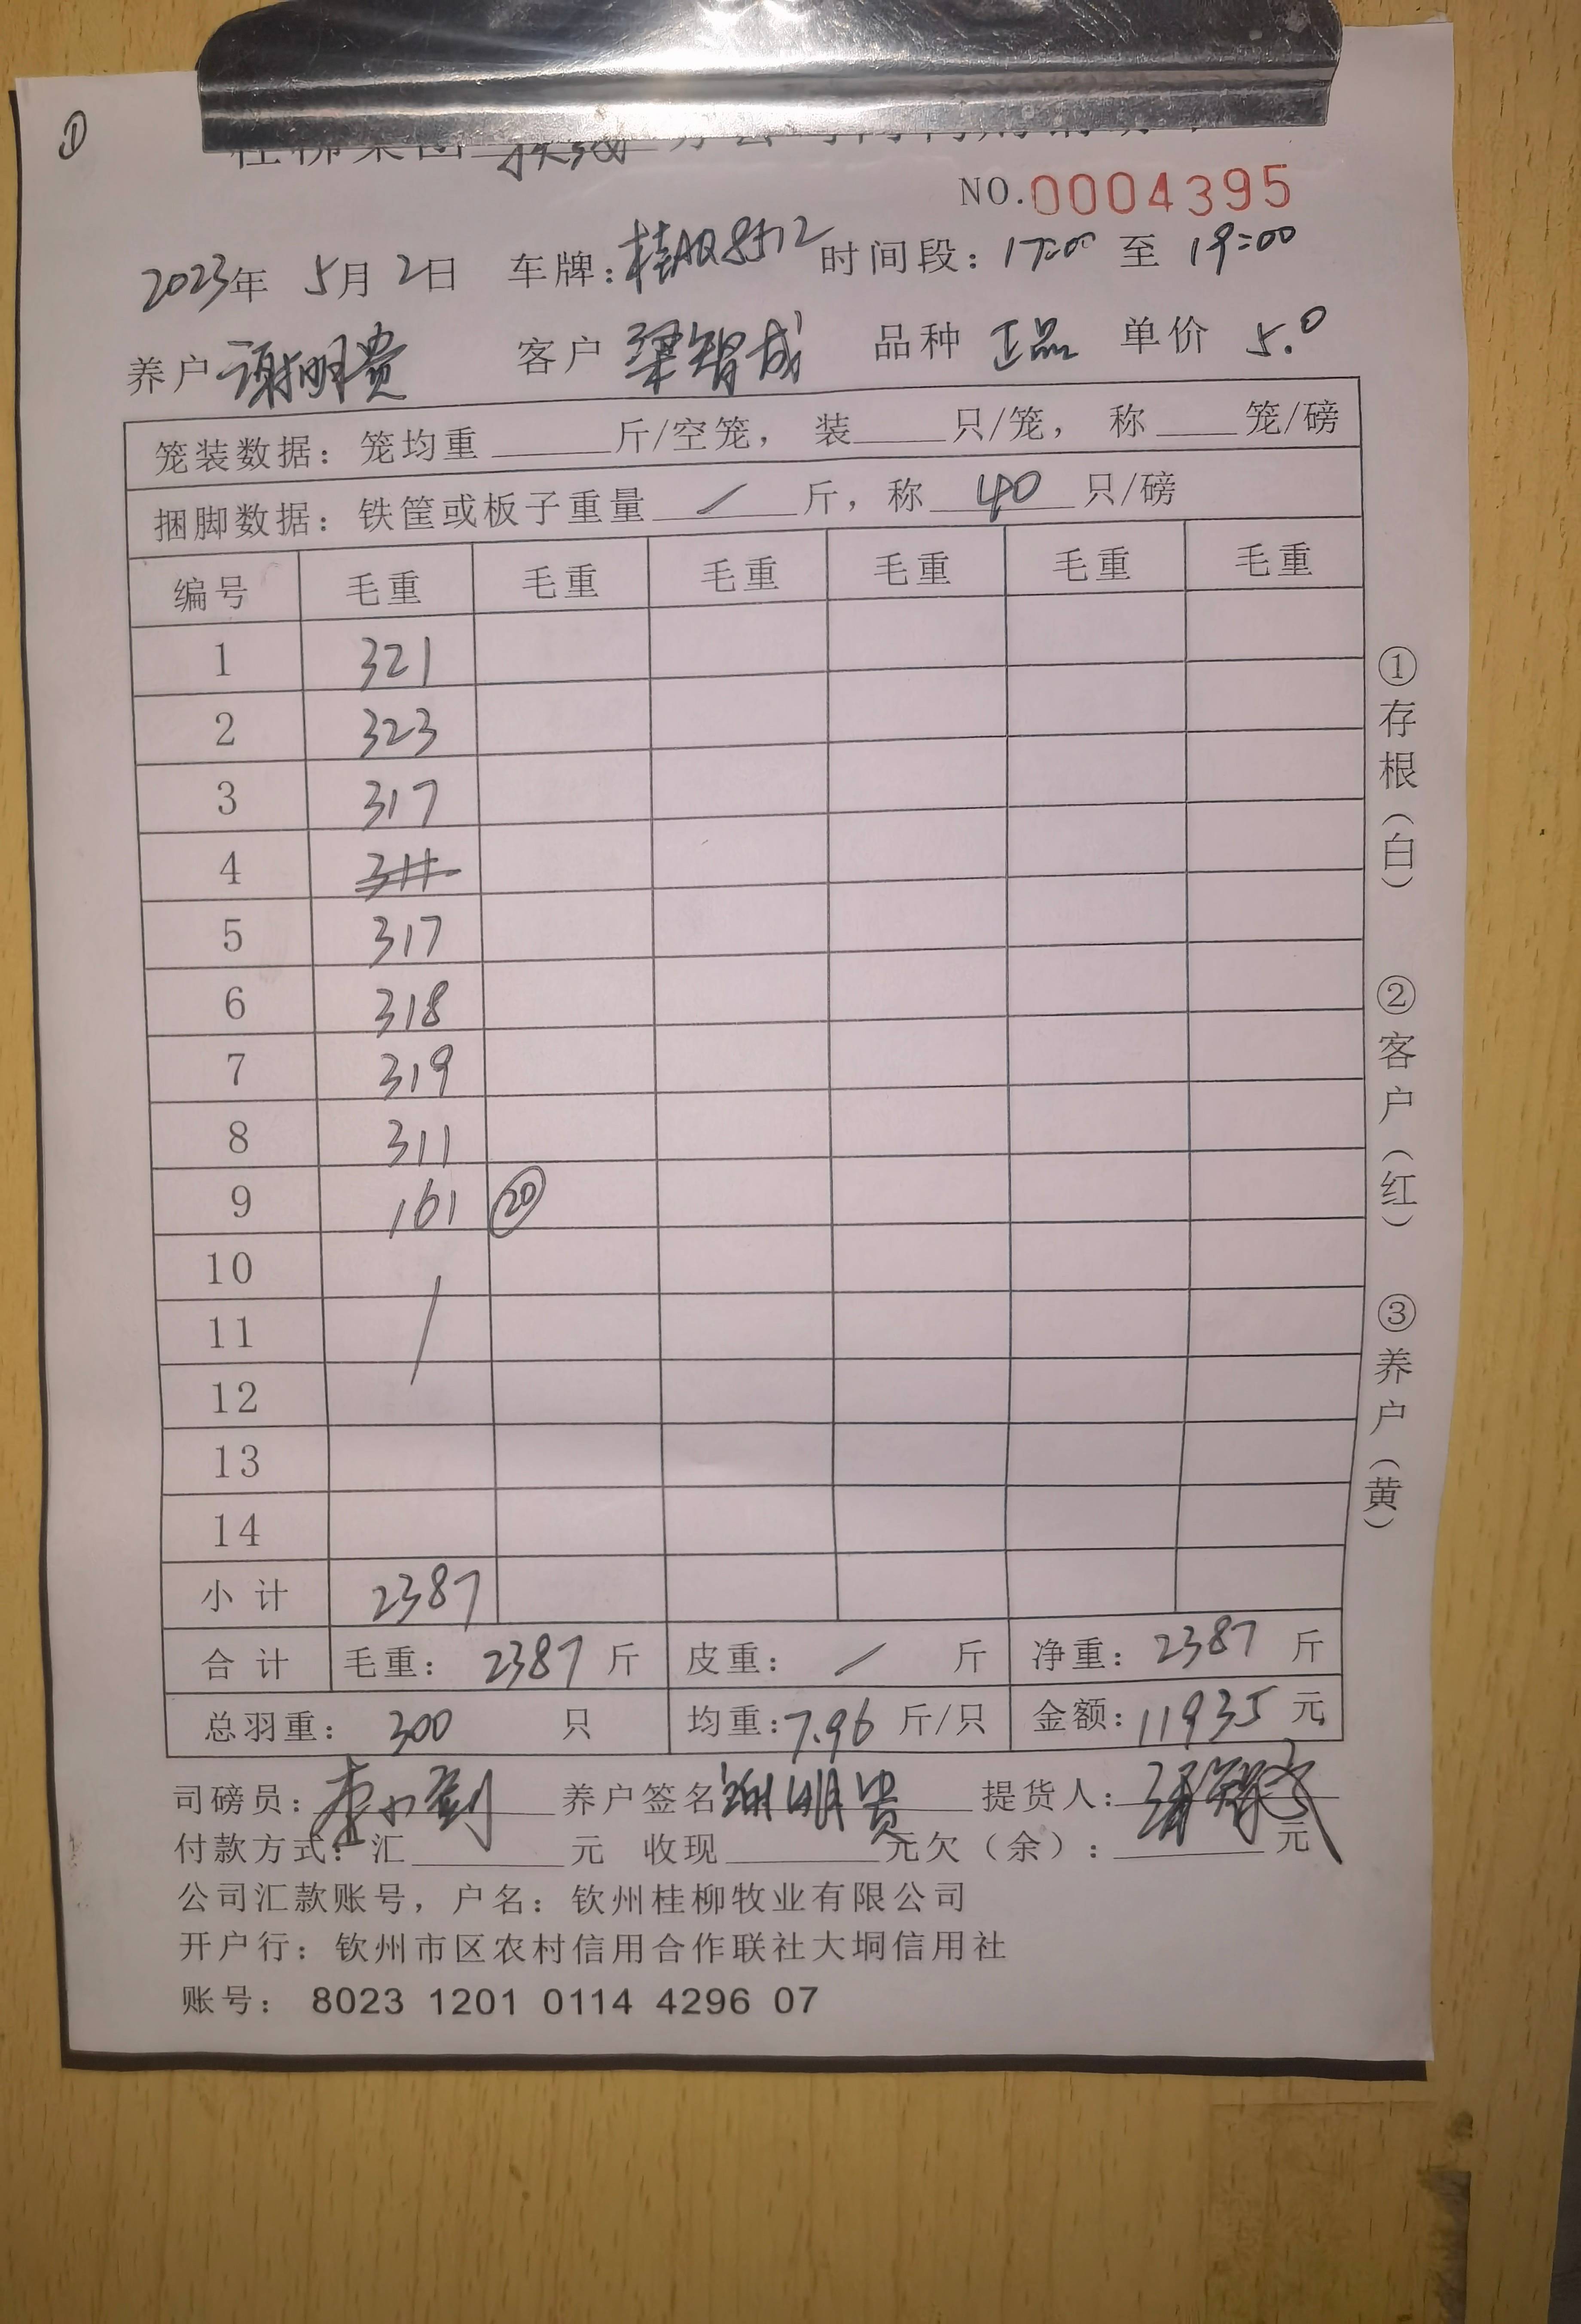 ①
桂柳集团
NO.0004395
2023年 5月 2日 车牌:桂AQ8512 时间段:17:00 至 19:00
养户 谢明贵 客户 梁智成 品种 正品 单价 5.0
笼装数据:笼均重 斤/空笼, 装 只/笼, 称 笼/磅
捆脚数据:铁筐或板子重量 / 斤,称 40 只/磅
编号 毛重 毛重 毛重 毛重 毛重 毛重
1 321
2 323
3 317
4
5 317
6 318
7 319
8 311
9 161 ⑳
10
11 /
12
13
14
小计 2387
合计 毛重: 2387 斤 皮重: / 斤 净重: 2387 斤
总羽重: 300 只 均重:7.96 斤/只 金额:11935 元
司磅员: 养户签名 谢明贵 提货人: 梁智成
付款方式:汇 元 收现 元欠(余): 元
公司汇款账号,户名:钦州桂柳牧业有限公司
开户行:钦州市区农村信用合作联社大垌信用社
账号: 8023 1201 0114 4296 07
①存根(白) ②客户(红) ③养户(黄)